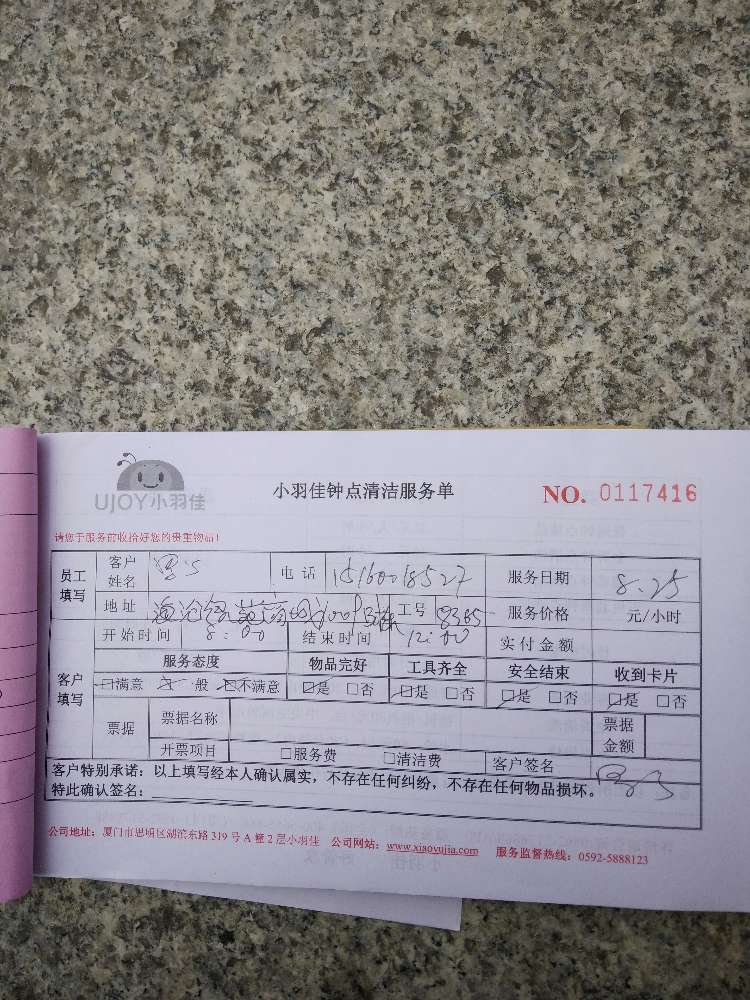 UJOY小羽佳
小羽佳钟点清洁服务单
NO. 0117416
请您于服务前收拾好您的贵重物品!
员工填写 客户姓名 电话 15160018527 服务日期 8.25
地址 工号 8365 服务价格 元/小时
客户填写 开始时间 8:00 结束时间 12:00 实付金额
服务态度 物品完好 工具齐全 安全结束 收到卡片
□满意 一般 □不满意 □是 □否 □是 □否 □是 □否 □是 □否
票据 票据名称 票据金额
开票项目 □服务费 □清洁费 客户签名
客户特别承诺:以上填写经本人确认属实,不存在任何纠纷,不存在任何物品损坏。
特此确认签名:
公司地址:厦门市思明区湖滨东路 319 号 A 幢 2 层小羽佳 公司网站:www.xiaoyujia.com 服务监督热线:0592-5888123